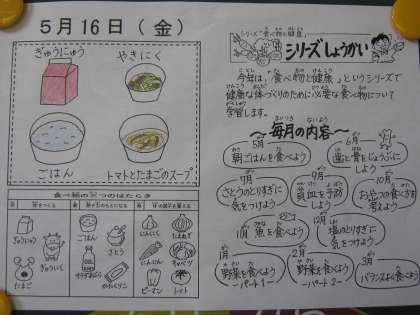 5月16日(金)
ぎゅうにゅう
やきにく
ごはん
トマトとたまごのスープ
ぎゅうにゅう
ぎゅうにく
たまご
ごはん
さとう
サラダあぶら
かたくりこ
にんにく
たまねぎ
にんじん
キャベツ
ピーマン
トマト
シリーズ"食べ物と健康"
シリーズしょうかい
今年は、"食べ物と健康"というシリーズで
健康な体づくりのために必要な食べ物について
学習します。
毎月の内容
5月
朝ごはんを食べよう
6月
歯と骨をじょうぶに
しよう
さとうのとりすぎに
気をつけよう
9月
貧血を予防
しよう
10月
おやつの食べ方を
考えよう
魚を食べよう
12月
塩のとりすぎに
気をつけよう
1月
野菜を食べよう
ーパート1ー
2月
野菜を食べよう
ーパート2ー
3月
バランスよく食べよう